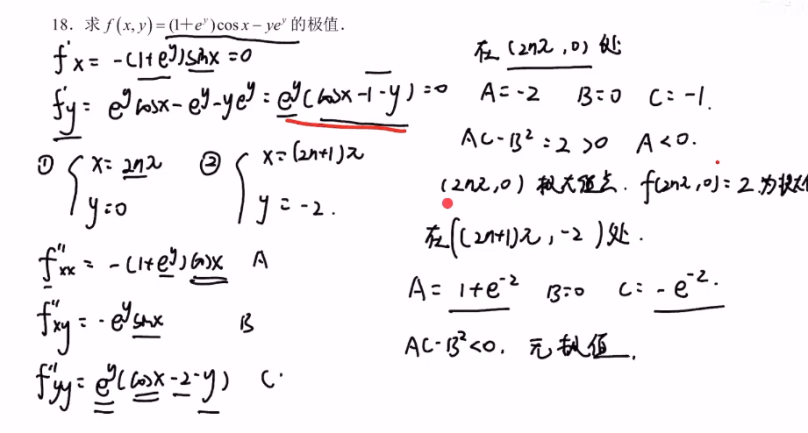 18. 求 f(x,y)=(1+e^y)cosx-ye^y 的极值.
f'x = -(1+e^y)sinx=0
f'y = e^y cosx-e^y-ye^y = e^y(cosx-1-y)=0
① { x=2nπ y=0 ② { x=(2n+1)π y=-2.
f''xx = -(1+e^y)cosx A
f''xy = -e^y sinx B
f''yy = e^y(cosx-2-y) C.
在(2nπ,0)处
A=-2 B=0 C=-1.
AC-B²=2>0 A<0.
(2nπ,0)极大值点. f(2nπ,0)=2.为极大
在((2n+1)π,-2)处.
A=1+e^-2 B=0 C=-e^-2.
AC-B²<0. 无极值.